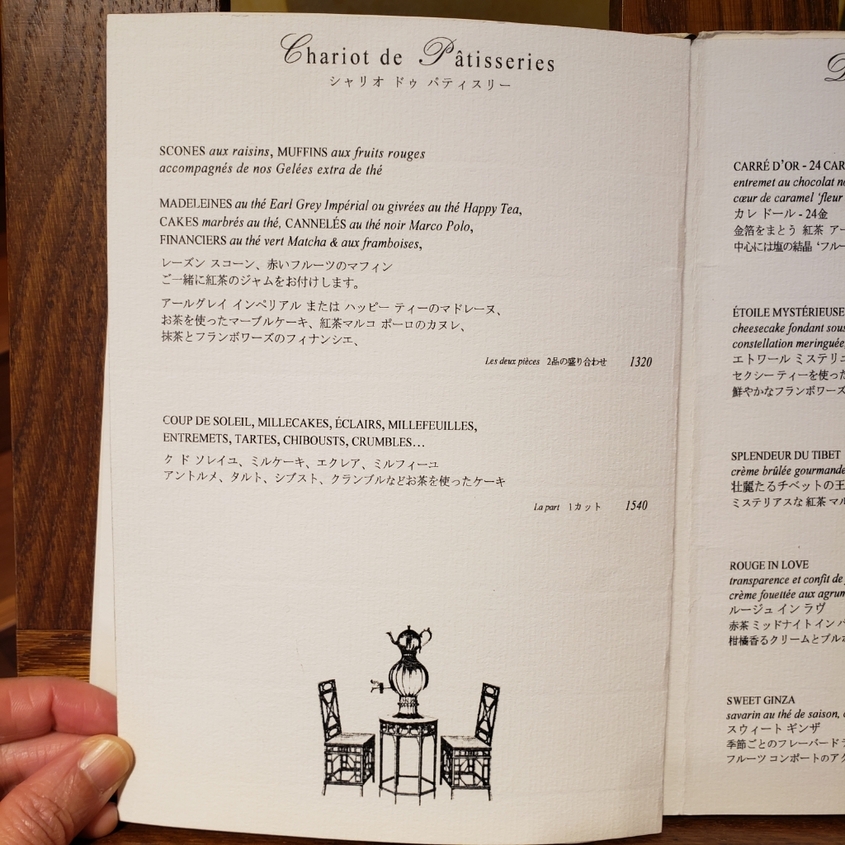 Chariot de Pâtisseries
シャリオ ドゥ パティスリー
SCONES aux raisins, MUFFINS aux fruits rouges
accompagnés de nos Gelées extra de thé
MADELEINES au thé Earl Grey Impérial ou givrées au thé Happy Tea,
CAKES marbrés au thé, CANNELÉS au thé noir Marco Polo,
FINANCIERS au thé vert Matcha & aux framboises,
レーズン スコーン、赤いフルーツのマフィン
ご一緒に紅茶のジャムをお付けします。
アールグレイ インペリアル または ハッピー ティーのマドレーヌ、
お茶を使ったマーブルケーキ、紅茶マルコ ポーロのカヌレ、
抹茶とフランボワーズのフィナンシエ、
Les deux pièces 2品の盛り合わせ 1320
COUP DE SOLEIL, MILLECAKES, ÉCLAIRS, MILLEFEUILLES,
ENTREMETS, TARTES, CHIBOUSTS, CRUMBLES…
ク ド ソレイユ、ミルケーキ、エクレア、ミルフィーユ
アントルメ、タルト、シブスト、クランブルなどお茶を使ったケーキ
La part 1カット 1540
CARRÉ D'OR - 24 CAR
entremet au chocolat
cœur de caramel 'fleur
カレ ドール - 24金
金箔をまとう 紅茶 アー
中心には塩の結晶 'フルー
ÉTOILE MYSTÉRIEUSE
cheesecake fondant
constellation meringuée
エトワール ミステリ
セクシー ティーを使っ
鮮やかなフランボワーズ
SPLENDEUR DU TIBET
crème brûlée gourmande
壮麗たるチベットの王
ミステリアスな 紅茶 マル
ROUGE IN LOVE
transparence et confit de
crème fouettée aux agrum
ルージュ イン ラヴ
赤茶 ミッドナイト イン パ
柑橘香るクリームとブル
SWEET GINZA
savarin au thé de saison,
スウィート ギンザ
季節ごとのフレーバード
フルーツ コンポートのア